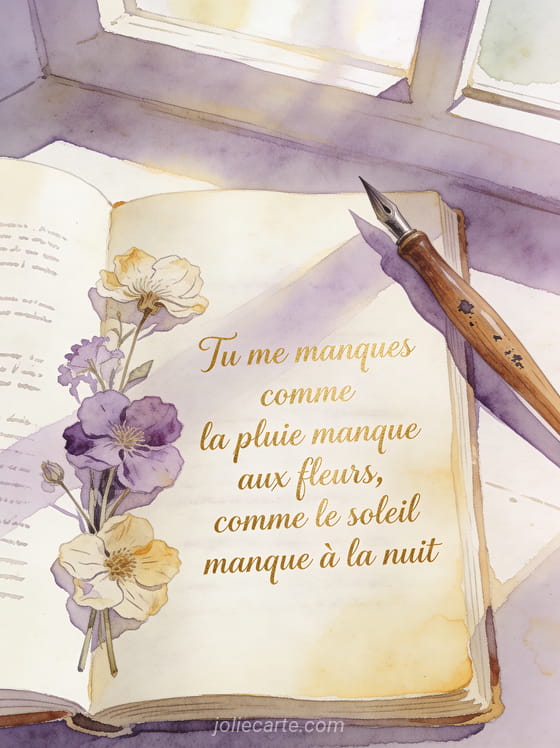 Tu me manques
comme
la pluie manque
aux fleurs,
comme le soleil
manque à la nuit
joliecarte.com